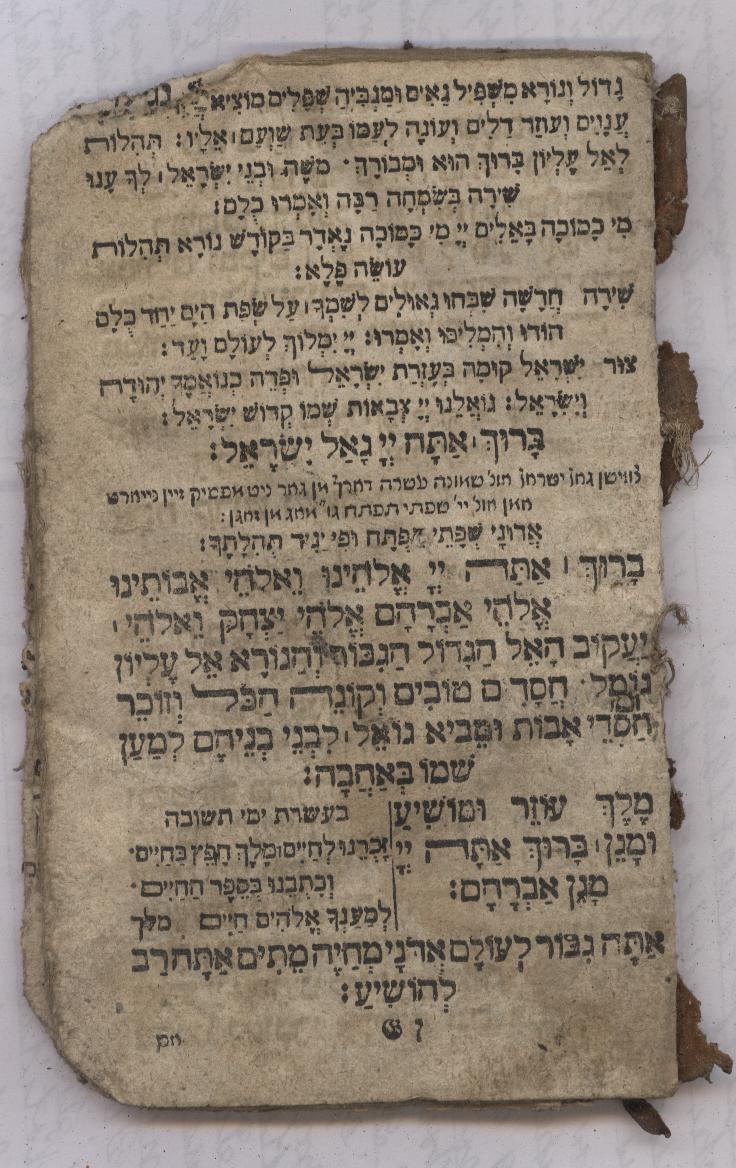 גָּדוֹל וְנוֹרָא מַשְׁפִּיל גֵּאִים וּמַגְבִּיהַּ שְׁפָלִים מוֹצִיא
עֲנָוִים וְעוֹזֵר דַּלִּים וְעוֹנֶה לְעַמּוֹ בְּעֵת שַׁוְּעָם אֵלָיו: תְּהִלּוֹת
לְאֵל עֶלְיוֹן בָּרוּךְ הוּא וּמְבוֹרָךְ. מֹשֶׁה וּבְנֵי יִשְׂרָאֵל, לְךָ עָנוּ
שִׁירָה בְּשִׂמְחָה רַבָּה וְאָמְרוּ כֻלָּם:
מִי כָמוֹכָה בָּאֵלִים יְיָ מִי כָּמוֹכָה נֶאְדָּר בַּקּוֹדֶשׁ נוֹרָא תְּהִלּוֹת
עוֹשֵׂה פֶלֶא:
שִׁירָה חֲדָשָׁה שִׁבְּחוּ גְאוּלִים לְשִׁמְךָ, עַל שְׂפַת הַיָּם יַחַד כֻּלָּם
הוֹדוּ וְהִמְלִיכוּ וְאָמְרוּ: יְיָ יִמְלוֹךְ לְעוֹלָם וָעֶד:
צוּר יִשְׂרָאֵל קוּמָה בְּעֶזְרַת יִשְׂרָאֵל וּפְדֵה כִנְאֻמֶךָ יְהוּדָה
וְיִשְׂרָאֵל: גּוֹאֲלֵנוּ יְיָ צְבָאוֹת שְׁמוֹ קְדוֹשׁ יִשְׂרָאֵל:
בָּרוּךְ, אַתָּה יְיָ גָּאַל יִשְׂרָאֵל:
צווישן גאל ישראל אונ' שמונה עשרה דארף מן גאר ניט מפסיק זיין נייארט
מאן אונ' יי' שפתי תפתח גו' מאג מן זאגן:
אֲדוֹנָי שְׂפָתַי תִּפְתָּח וּפִי יַגִּיד תְּהִלָּתֶךָ:
בָּרוּךְ, אַתָּה יְיָ אֱלֹהֵינוּ וֵאלֹהֵי אֲבוֹתֵינוּ
אֱלֹהֵי אַבְרָהָם אֱלֹהֵי יִצְחָק וֵאלֹהֵי,
יַעֲקוֹב הָאֵל הַגָּדוֹל הַגִּבּוֹר וְהַנּוֹרָא אֵל עֶלְיוֹן
גּוֹמֵל חֲסָדִים טוֹבִים וְקוֹנֵה הַכֹּל וְזוֹכֵר
חַסְדֵי אָבוֹת וּמֵבִיא גוֹאֵל, לִבְנֵי בְנֵיהֶם לְמַעַן
שְׁמוֹ בְּאַהֲבָה:
מֶלֶךְ עוֹזֵר וּמוֹשִׁיעַ
וּמָגֵן, בָּרוּךְ אַתָּה יְיָ
מָגֵן אַבְרָהָם:
בעשרת ימי תשובה
זָכְרֵנוּ לְחַיִּים, מֶלֶךְ חָפֵץ בַּחַיִּים.
וְכָתְבֵנוּ בְּסֵפֶר הַחַיִּים.
לְמַעַנְךָ אֱלֹהִים חַיִּים מלך
אַתָּה גִבּוֹר לְעוֹלָם אֲדֹנָי מְחַיֵּה מֵתִים אַתָּה רַב
לְהוֹשִׁיעַ: